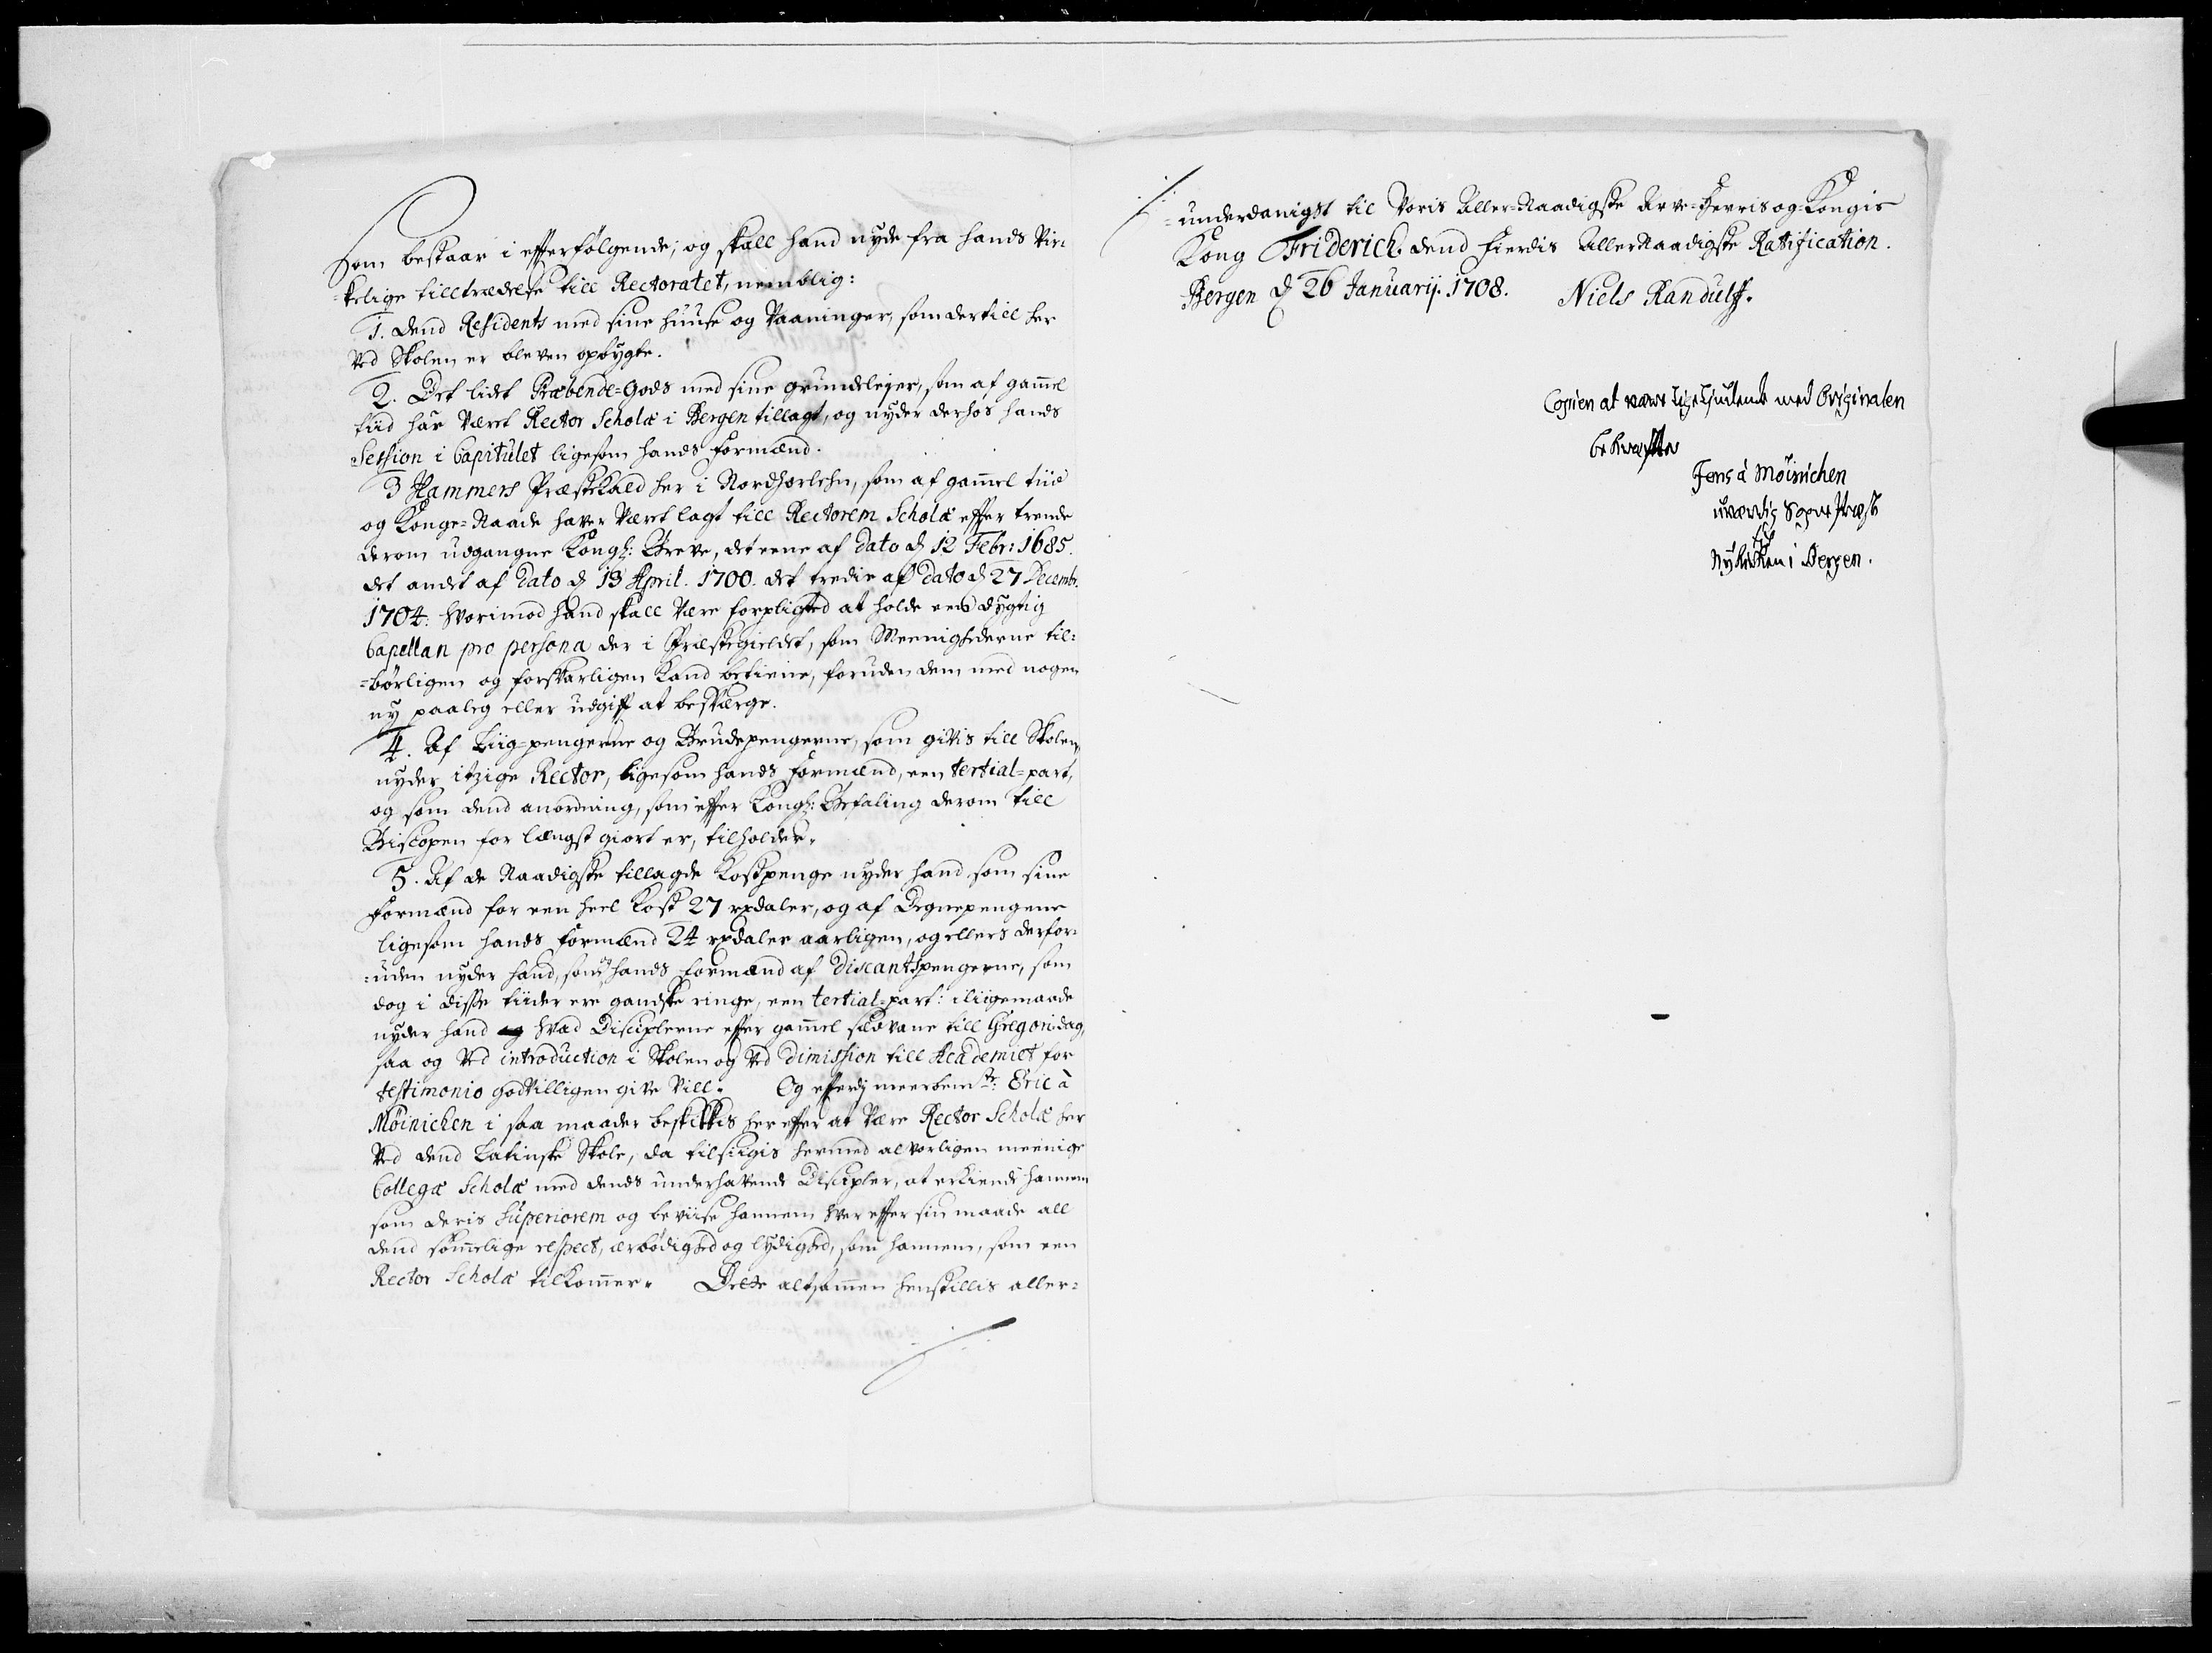 som bestaar i efterfølgende; og skall hand nyde fra hands Vir-
=kelige tilltrædelse till Rectoratet, nemblig:
1. Dend Residents med sine Huuse og Vaaninger, som dertill her
Ved Skolen er bleven opbygte.
2. Det lidet Præbende=Gods med sine grundeleyer, som af gam̄el
tiid har Været Rector Scholæ i Bergen tillagt, og nyder derhos hands
Session i Capitulet ligesom hands Formænd.
3 Hammers Præstekald her i Nordhorlehn, som af gam̄el tiid
og Konge=Naade haver Været lagt till Rectorem Scholæ efter trende
derom udgangne Kongl: Breve, det eene af Dato d 12 Febr: 1685.
det andet af Dato d 13 April. 1700. det tredie af Dato d 27 Decembr.
1704: Hvorimod hand skall Være forpligted at holde een dygtig
Capellan pro persona der i Præstegieldet, som Meenighederne til=
=børligen og forsvarligen Kand betiene, foruden dem med nogen
ny paaleg eller udgift at besværge.
4. Af Liig=pengerne og Brudepengerne, som givis till Skolen,
nyder itzige Rector, ligesom hands Formænd, een tertial=part,
og som dend anordning, som efter Kongl: Befaling derom till
Biscopen for længst giort er, tilholder.
5. Af de Naadigste tillagde Kostpenge nyder hand som sine
Formænd for een heel Kost 27 rxdaler, og af Degnepengene
ligesom hands Formænd 24 rxdaler aarligen, og ellers derfor=
=uden nyder hand, som og hands Formænd af Discantspengerne, som
dog i disse tiider ere gandske ringe, een tertial=part: iliigemaade
nyder hand Hvad Disciplerne efter gam̄el sædvane till Gregori dag,
saa og Ved introduction i Skolen og Ved Dimission till Academiet for
testimonio godvilligen give Vill. Og efterdj meerbem.te Hr: Eric à
Möinichen i saa maader beskikkis her efter at Være Rector Scholæ her
Ved dend Latinske Skole, da tilsiigis hermed alvorligen meenige
Collegæ Scholæ med dends underhavende Discipler, at erkiende hannem
som deris Superiorem og beviise hannem Hver efter sin maade all
dend søm̄elige respect, ærbødighed og lydighed, som hannem, som een
Rector Scholæ tilkom̄er. Dette altsam̄en henstillis aller=
=underdanigst til Voris Aller=Naadigste Arve=Herris og Kongis
Kong Friderich dend Fierdis AllerNaadigste Ratification.
Bergen d 26 Januarij. 1708. Niels Randulff.
Copien at være Ligeljudende med Originalen
bekræfter
Jens à Möinichen
uværdig Sogne Præst
til
Nykirken i Bergen.